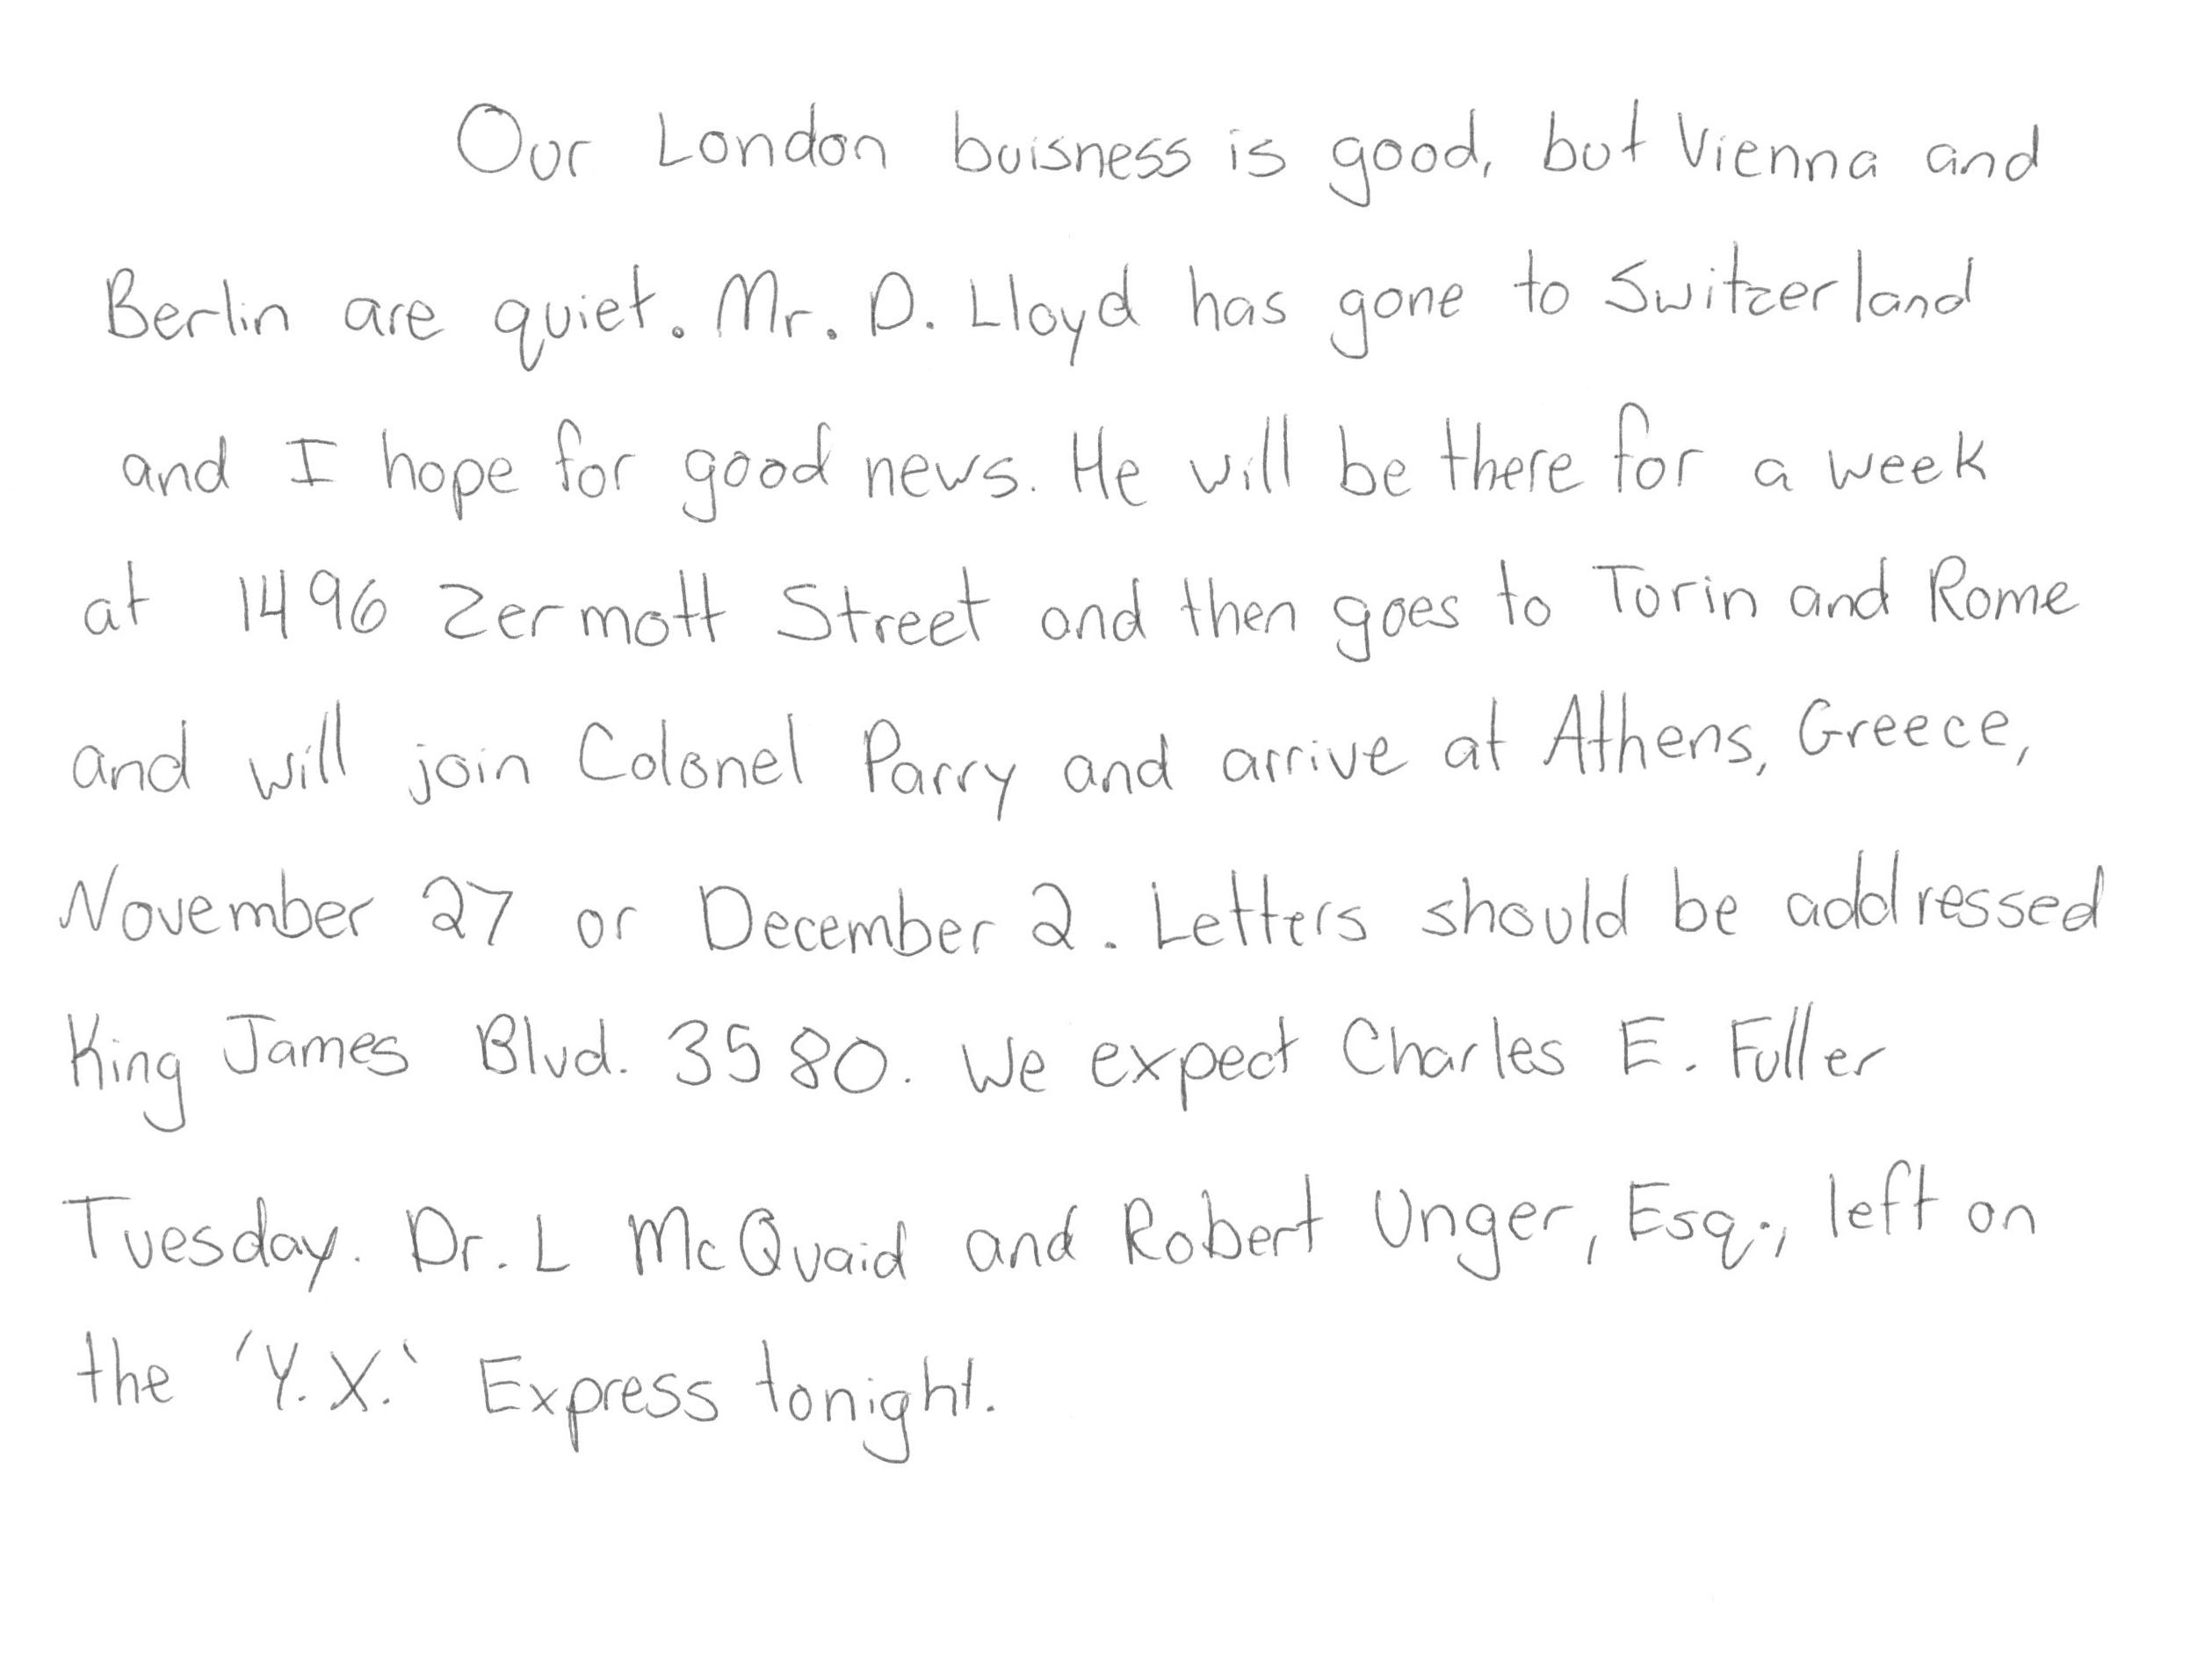 Our London buisness is good, but Vienna and
Berlin are quiet. Mr. D. Lloyd has gone to Switzerland
and I hope for good news. He will be there for a week
at 1496 Zermott Street and then goes to Torin and Rome
and will join Colonel Parry and arrive at Athens, Greece,
November 27 or December 2. Letters should be addressed
King James Blvd. 3580. We expect Charles E. Fuller
Tuesday. Dr. L McQuaid and Robert Unger, Esq., left on
the 'Y.X.' Express tonight.